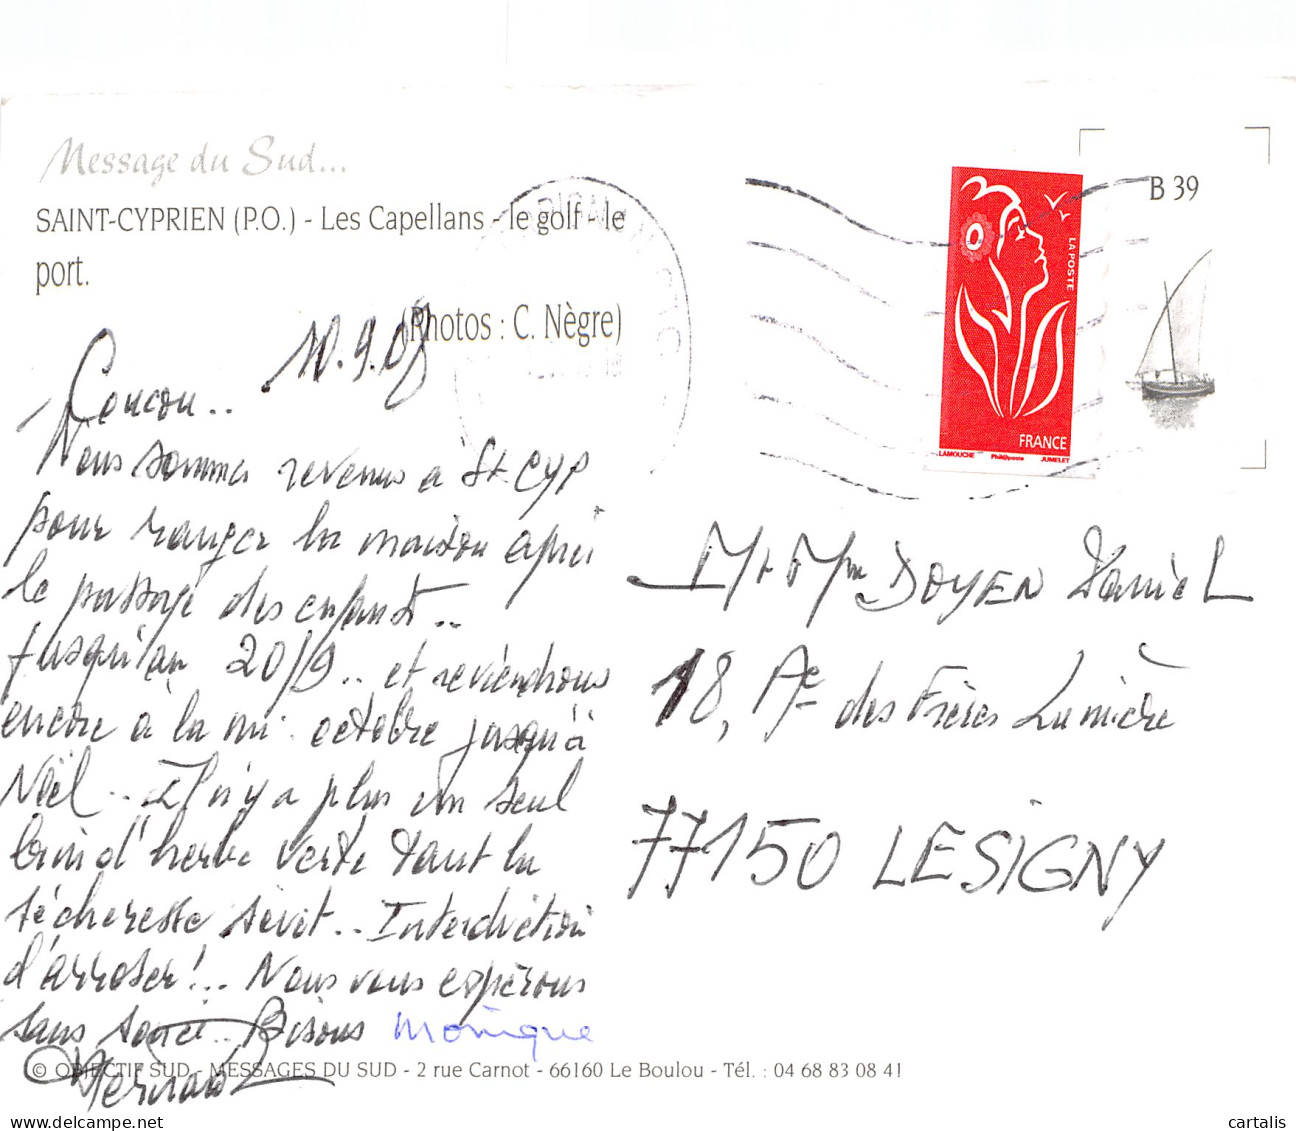 Message du Sud...
SAINT-CYPRIEN (P.O.) - Les Capellans - le golf - le
port.
(Photos : C. Nègre)
10.9.08
Coucou..
Nous sommes revenus à St CYP
pour ranger la maison après
le passage des enfants..
Jusqu'au 20/9.. et reviendrons
encore à la mi-octobre jusqu'à
Noël.. Il n'y a plus un seul
brin d'herbe verte tant la
sécheresse sévit.. Interdiction
d'arroser!.. Nous vous espérons
sans souci.. Bisous Monique
Bernard
B 39
LA POSTE
FRANCE
LAMOUCHE Phil@poste JUMELET
Mr Mme DOYEN Daniel
18, Ae des Frères Lumière
77150 LESIGNY
© OBJECTIF SUD - MESSAGES DU SUD - 2 rue Carnot - 66160 Le Boulou - Tél. : 04 68 83 08 41
cartalis
delcampe.net